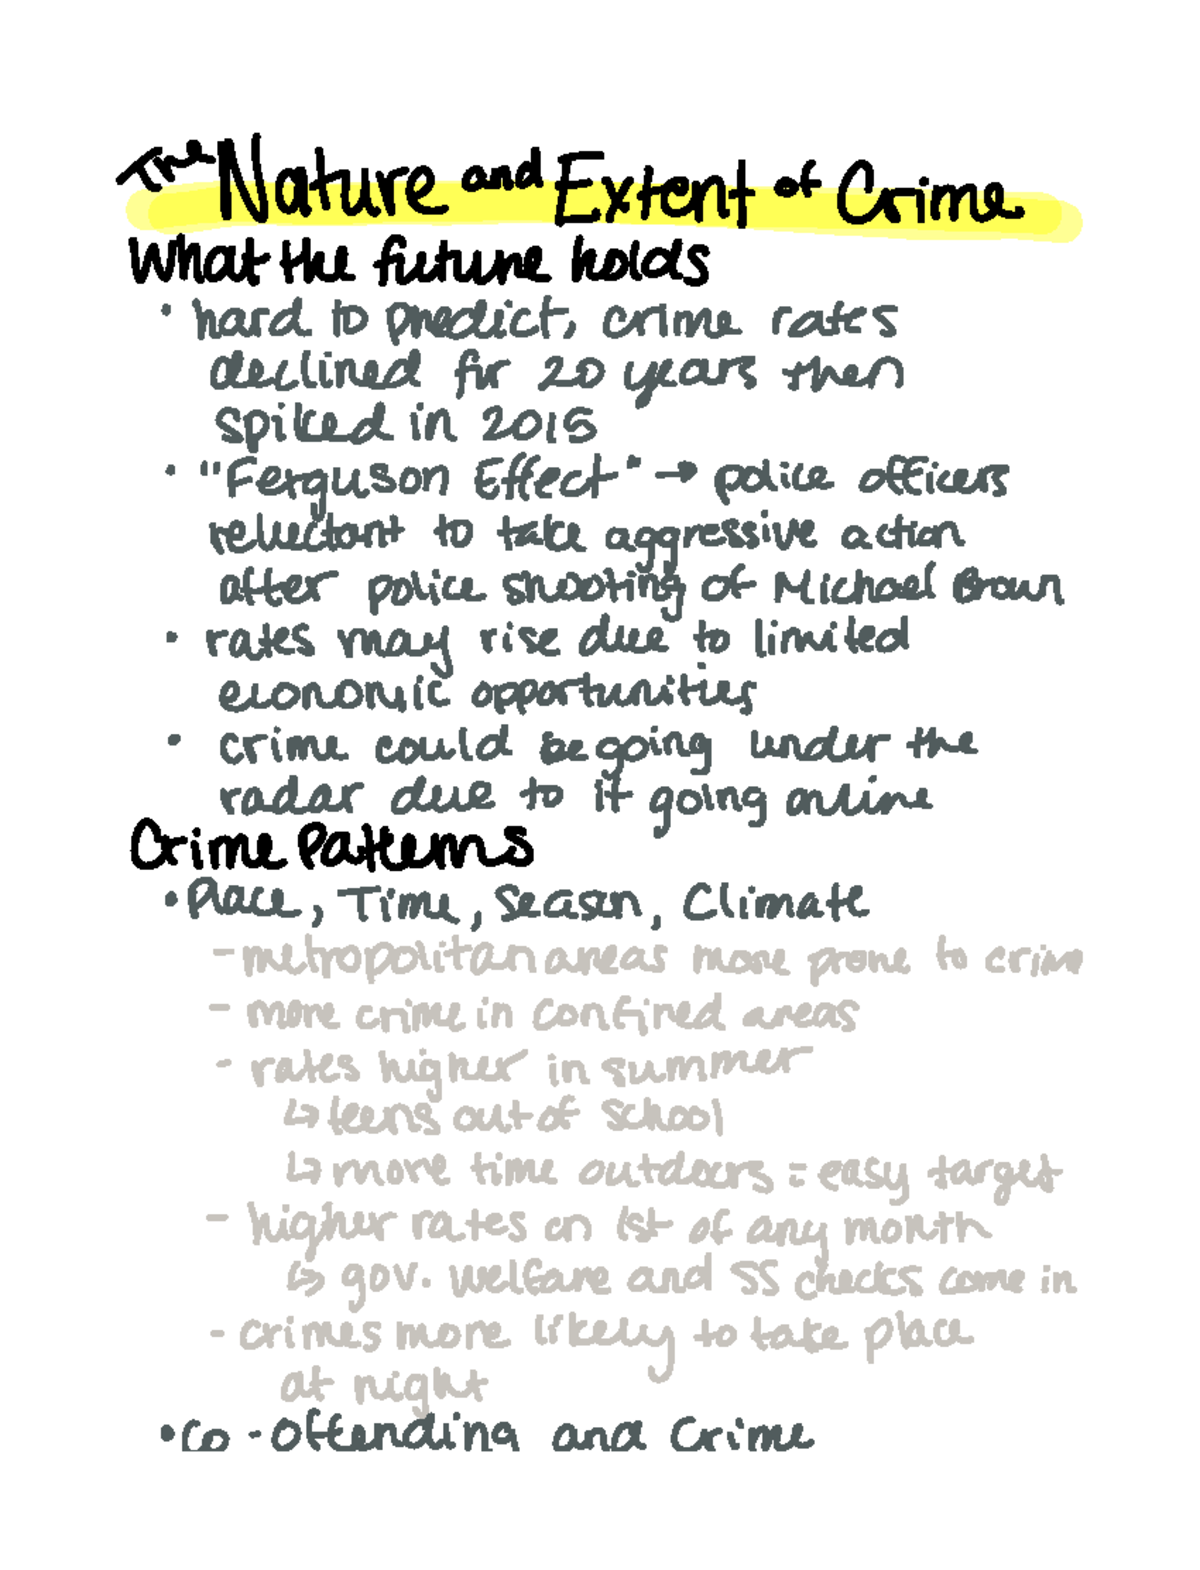 The Nature and Extent of Crime
What the future holds
• hard to predict, crime rates
declined for 20 years then
spiked in 2015
• "Ferguson Effect" → police officers
reluctant to take aggressive action
after police shooting of Michael Brown
• rates may rise due to limited
economic opportunities
• crime could be going under the
radar due to it going online
Crime Patterns
• Place, Time, Season, Climate
- metropolitan areas more prone to crime
- more crime in confined areas
- rates higher in summer
↳ teens out of school
↳ more time outdoors = easy target
- higher rates on 1st of any month
↳ gov. welfare and SS checks come in
- crimes more likely to take place
at night
• Co-Offending and Crime